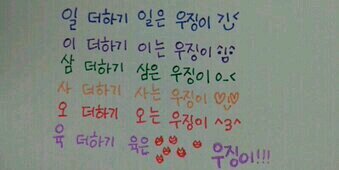 일 더하기 일은 우징이 긔
이 더하기 이는 우징이
삼 더하기 삼은 우징이 o_<
사 더하기 사는 우징이 ♡♡
오 더하기 오는 우징이 ^3^
육 더하기 육은 우징이!!!